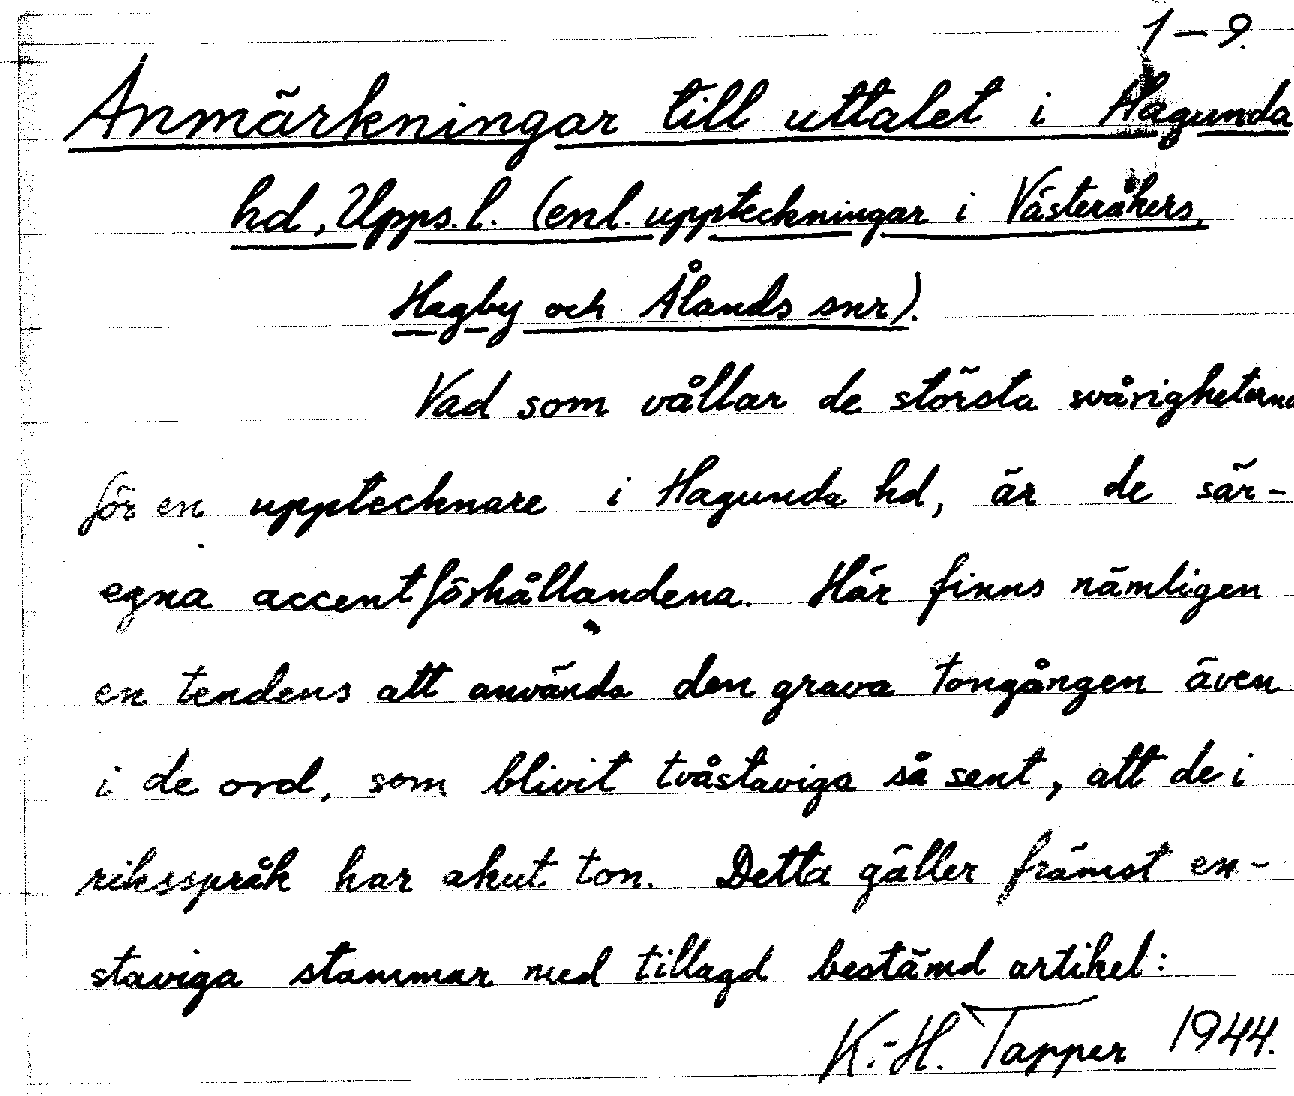 1–9.
Anmärkningar till uttalet i Hagunda
hd, Upps. l. (enl. uppteckningar i Västeråkers,
Hagby och Ålands snr).
Vad som vållar de största svårigheterna
för en upptecknare i Hagunda hd, är de sär-
egna accentförhållandena. Här finns nämligen
en tendens att använda den grava tongången även
i de ord, som blivit tvåstaviga så sent, att de i
riksspråk har akut ton. Detta gäller främst en-
staviga stammar med tillagd bestämd artikel:
K.-H. Tapper 1944.